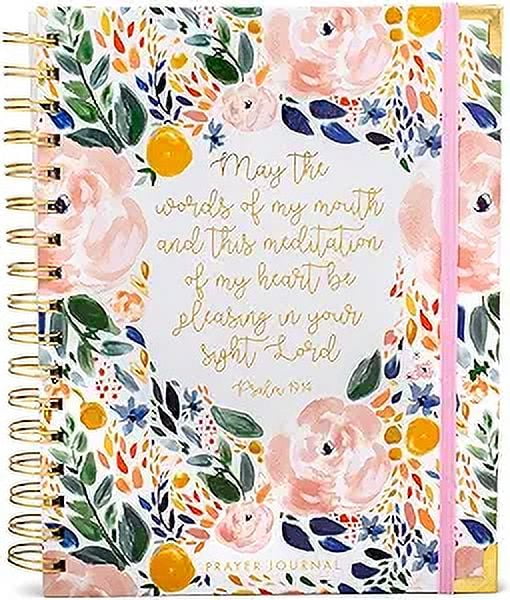 May the
words of my mouth
and this meditation
of my heart be
pleasing in your
sight Lord
Psalm 19:14
PRAYER JOURNAL